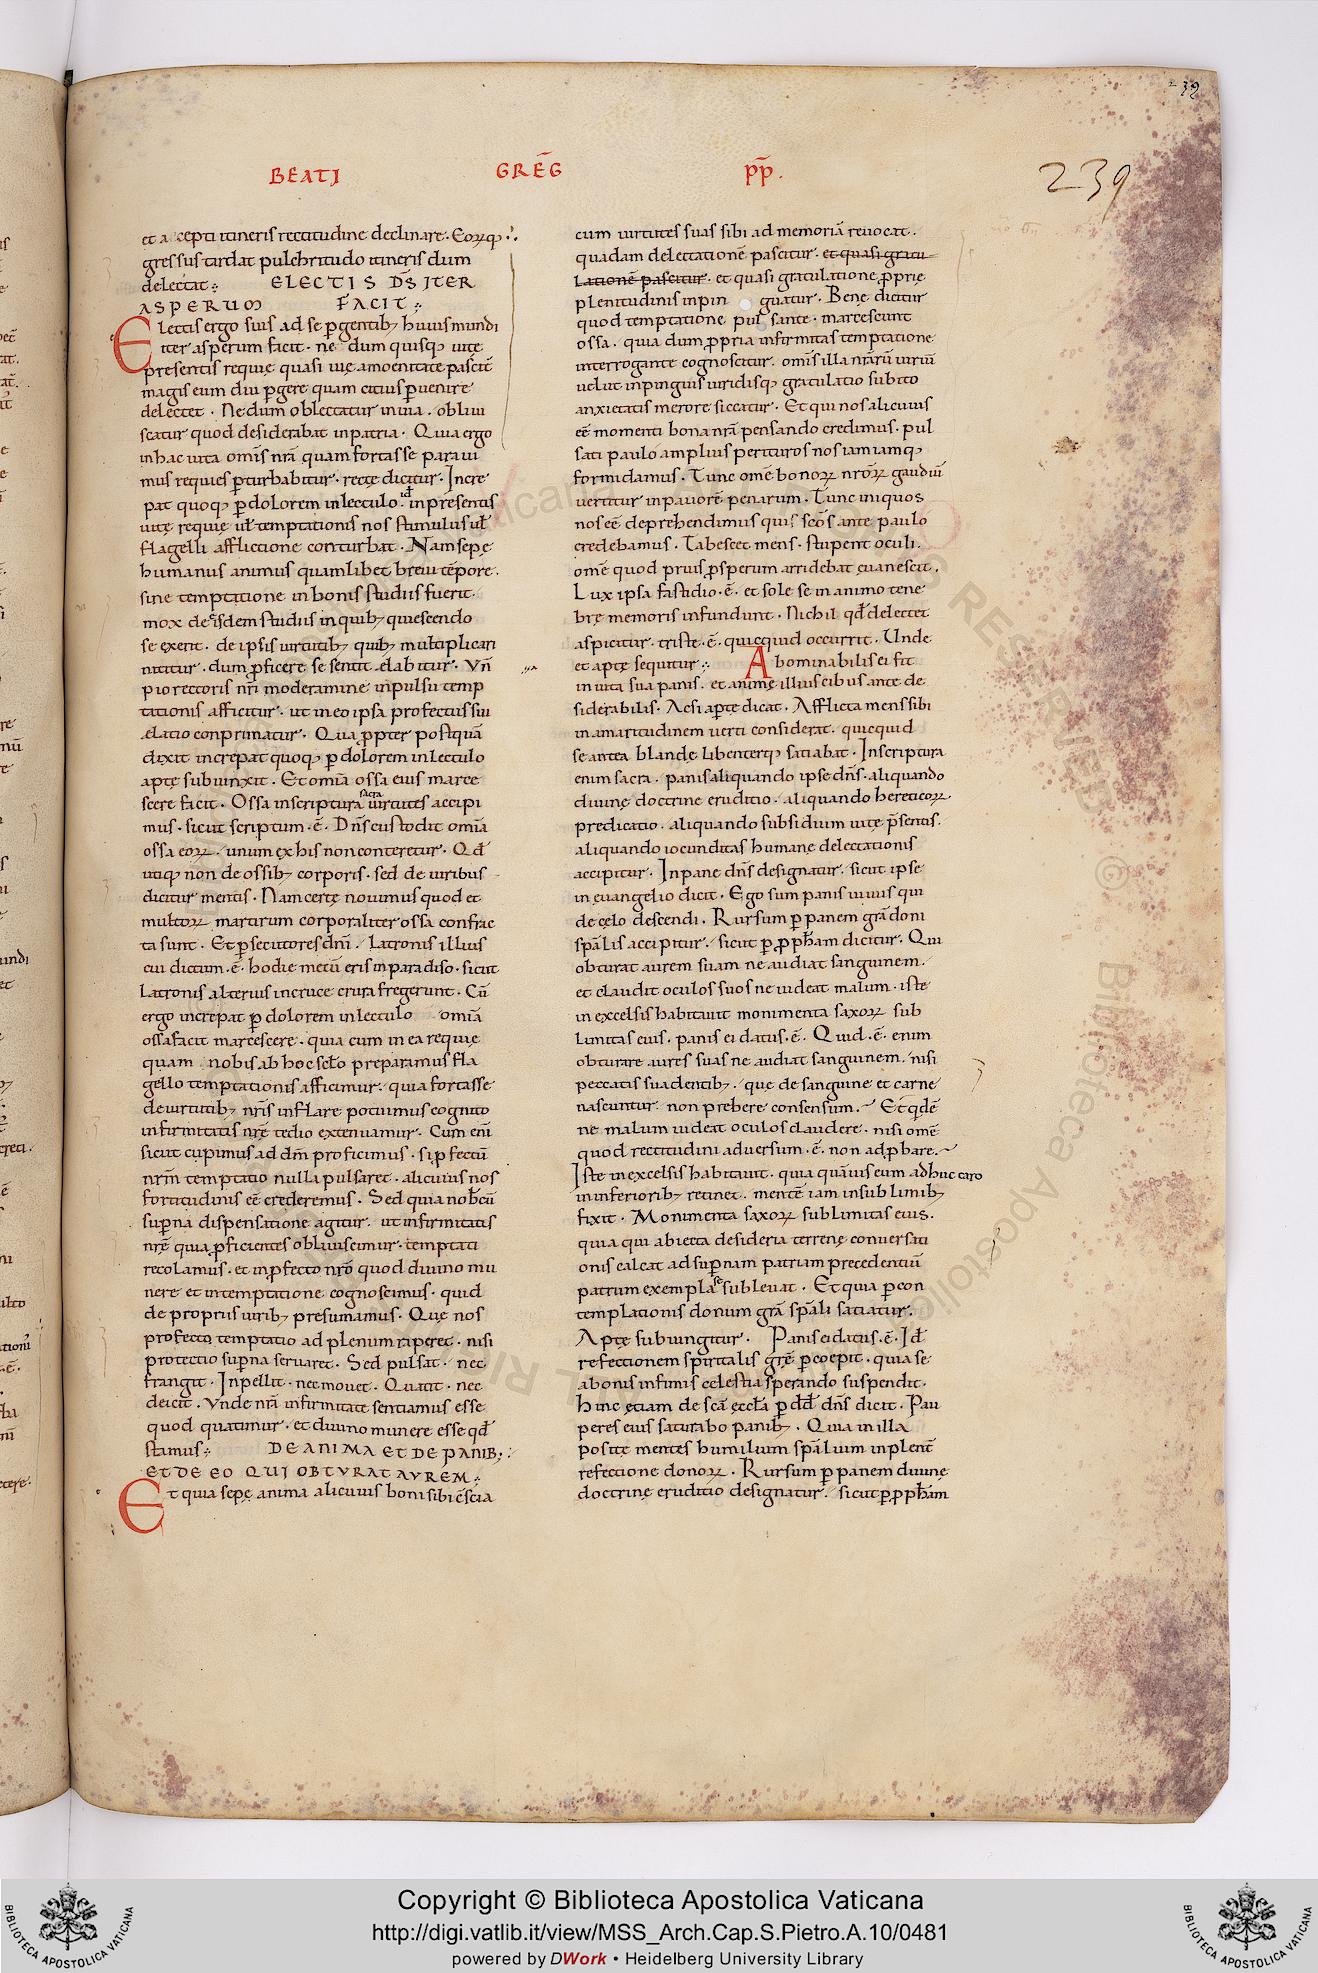 239
239
BEATI GREḠ PP̄.
et accepti itineris rectitudine declinare. Eorūq;
gressus tardat pulchritudo itineris dum
delectat: ELECTIS D̄S ITER
ASPERUM FACIT:
Electis ergo suis ad se ꝑgentib; huius mundi
iter asperum facit. ne dum quisq; uitę
presentis requie quasi uię amoenitate pascit̄
magis eum diu ꝑgere quam citius ꝑuenire
delectet. Ne dum oblectatur in uia. obliui
scatur quod desiderabat in patria. Quia ergo
in hac uita om̄is nr̄a quam fortasse paraui
mus requies ꝑturbabitur. recte dicitur. Incre
pat quoq; ꝑ dolorem in lectulo. id ē in presentis
uitę requię ut temptationis nos stimulus ul̄
flagelli afflictione conturbat. Nam sępe
humanus animus quamlibet breui tēpore.
sine temptatione in bonis studiis fuerit.
mox de eisdem studiis in quib; quiescendo
se exerit. de ipsis uirtutib; quib; multiplicari
nititur. dum ꝓficere se sentit elabitur. Vn̄
pio rectoris nr̄i moderamine inpulsu temp
tationis afficitur. ut in eo ipsa profectus sui
elatio conprimatur. Qua ꝓpter postquā
dixit increpat quoq; ꝑ dolorem in lectulo
aptę subiunxit. Et omīa ossa eius marce
scere facit. Ossa in scriptura sacra uirtutes accipi
mus. sicut scriptum. ē. Dn̄s custodit omīa
ossa eorꝝ. unum ex his non conteretur. Qd̄
utiq; non de ossib; corporis. sed de uiribus
dicitur mentis. Nam certę nouimus quod et
multorꝝ martirum corporaliter ossa confrac
ta sunt. Et ꝑsecutores dn̄i. latronis illius
cui dictum. ē. hodie mecū eris in paradiso. sicut
latronis alterius in cruce crura fregerunt. Cū
ergo increpat ꝑ dolorem in lectulo omīa
ossa facit marcescere. quia cum in ea requię
quam nobis ab hoc sclo preparamus fla
gello temptationis afficimur. quia fortasse
de uirtutib; nr̄is inflare potuimus cognito
infirmitatis nr̄ę tedio extenuamur. Cum eni
sicut cupimus ad dm̄ proficimus. si ꝓfectū
nr̄m temptatio nulla pulsaret. alicuius nos
fortitudinis eē crederemus. Sed quia nob̄cū
suꝑna dispensatione agitur. ut infirmitatis
nr̄ę quia ꝓficientes obliuiscimur. temptati
recolamus. et in ꝓfecto nr̄o quod diuino mu
nere et in temptatione cognoscimus. quid
de propriis uirib; presumamus. Quę nos
profecto temptatio ad plenum raperet. nisi
protectio suꝑna seruaret. Sed pulsat. nec
frangit. Inpellit. nec mouet. Quatit. nec
deicit. Vnde nr̄a infirmitate sentiamus esse
quod quatimur. et diuino munere esse qd̄
stamus: DE ANIMA ET DE PANIB;:
ET DE EO QUI OBTVRAT AVREM:
Et quia sępe anima alicuius boni sibi c̄scia
cum uirtutes suas sibi ad memoriā reuocat.
quadam delectationē pascitur. et quasi gratu
lationē pascitur. et quasi gratulatione ꝓprię
plenitudinis inpin guatur. Bene dicitur
quod temptatione pulsante. marcescunt
ossa. quia dum ꝓpria infirmitas temptatione
interrogante cognoscitur. om̄is illa nr̄arū uiriū
uelut inpinguis uiridisq; gratulatio subito
anxietatis merore siccatur. Et qui nos alicuius
eē momenti bona nr̄a pensando credimus. pul
sati paulo amplius perituros nos iam iamq;
formidamus. Tunc omē bonorꝝ nr̄orꝝ gaudiū
uertitur in pauorē penarum. Tunc iniquos
nos eē deprehendimus qui scōs ante paulo
credebamus. Tabescet mens. stupent oculi.
omē quod prius ꝓsperum arridebat euanescit.
Lux ipsa fastidio. ē. et sole se in animo tene
brę memoris infundunt. Nichil qd̄ delectet
aspicitur. triste. ē. quicquid occurrit. Unde
et aptę sequitur: Abominabilis ei fit
in uita sua panis. et animę illius cibus ante de
siderabilis. Ac si aꝑte dicat. Afflicta mens sibi
in amaritudinem uerti considerat. quicquid
se antea blandę libenterq; satiabat. In scriptura
enim sacra. panis aliquando ipse dn̄s. aliquando
diuinę doctrine eruditio. aliquando hereticorꝝ
predicatio. aliquando subsidium uitę p̄sentis.
aliquando iocunditas humanę delectationis
accipitur. In pane dn̄s designatur. sicut ipse
in euangelio dicit. Ego sum panis uiuus qui
de cęlo descendi. Rursum ꝑ panem gr̄a doni
sp̄alis accipitur. sicut ꝑ ꝓph̄am dicitur. Qui
obturat aurem suam ne audiat sanguinem.
et claudit oculos suos ne uideat malum. iste
in excelsis habitauit monimenta saxorꝝ sub
limitas eius. panis ei datus. ē. Quid. ē. enim
obturare aures suas ne audiat sanguinem. nisi
peccatis suadentib;. quę de sanguine et carne
nascuntur non prebere consensum. Et qd ē
ne malum uideat oculos claudere. nisi omē
quod rectitudini aduersum. ē. non adꝓbare.
Iste in excelsis habitauit. quia quāuis eum adhuc caro
in inferiorib; retinet. mentē iam in sublimib;
fixit. Monumenta saxorꝝ sublimitas eius.
quia qui abiecta desideria terrenę conuersati
onis calcat ad suꝑnam patriam precedentiū
patrum exempla se subleuat. Et quia ꝑ con
templationis donum gr̄a sp̄ali satiatur.
Aptę subiungitur. Panis ei datus. ē. Id̄
refectionem spiritalis gr̄ę ꝑcoepit. quia se
a bonis infimis cęlestia sperando suspendit.
hinc ętiam de scā ęcclā ꝑ dd̄ dn̄s dicit. Pau
peres eius saturabo panib;. Quia in illa
positę mentes humilium sp̄alium inplent̄
refectione donorꝝ. Rursum ꝑ panem diuinę
doctrinę eruditio designatur. sicut ꝑ ꝓph̄am
Copyright © Biblioteca Apostolica Vaticana
http://digi.vatlib.it/view/MSS_Arch.Cap.S.Pietro.A.10/0481
powered by DWork • Heidelberg University Library
BIBLIOTECA APOSTOLICA VATICANA
BIBLIOTECA APOSTOLICA VATICANA